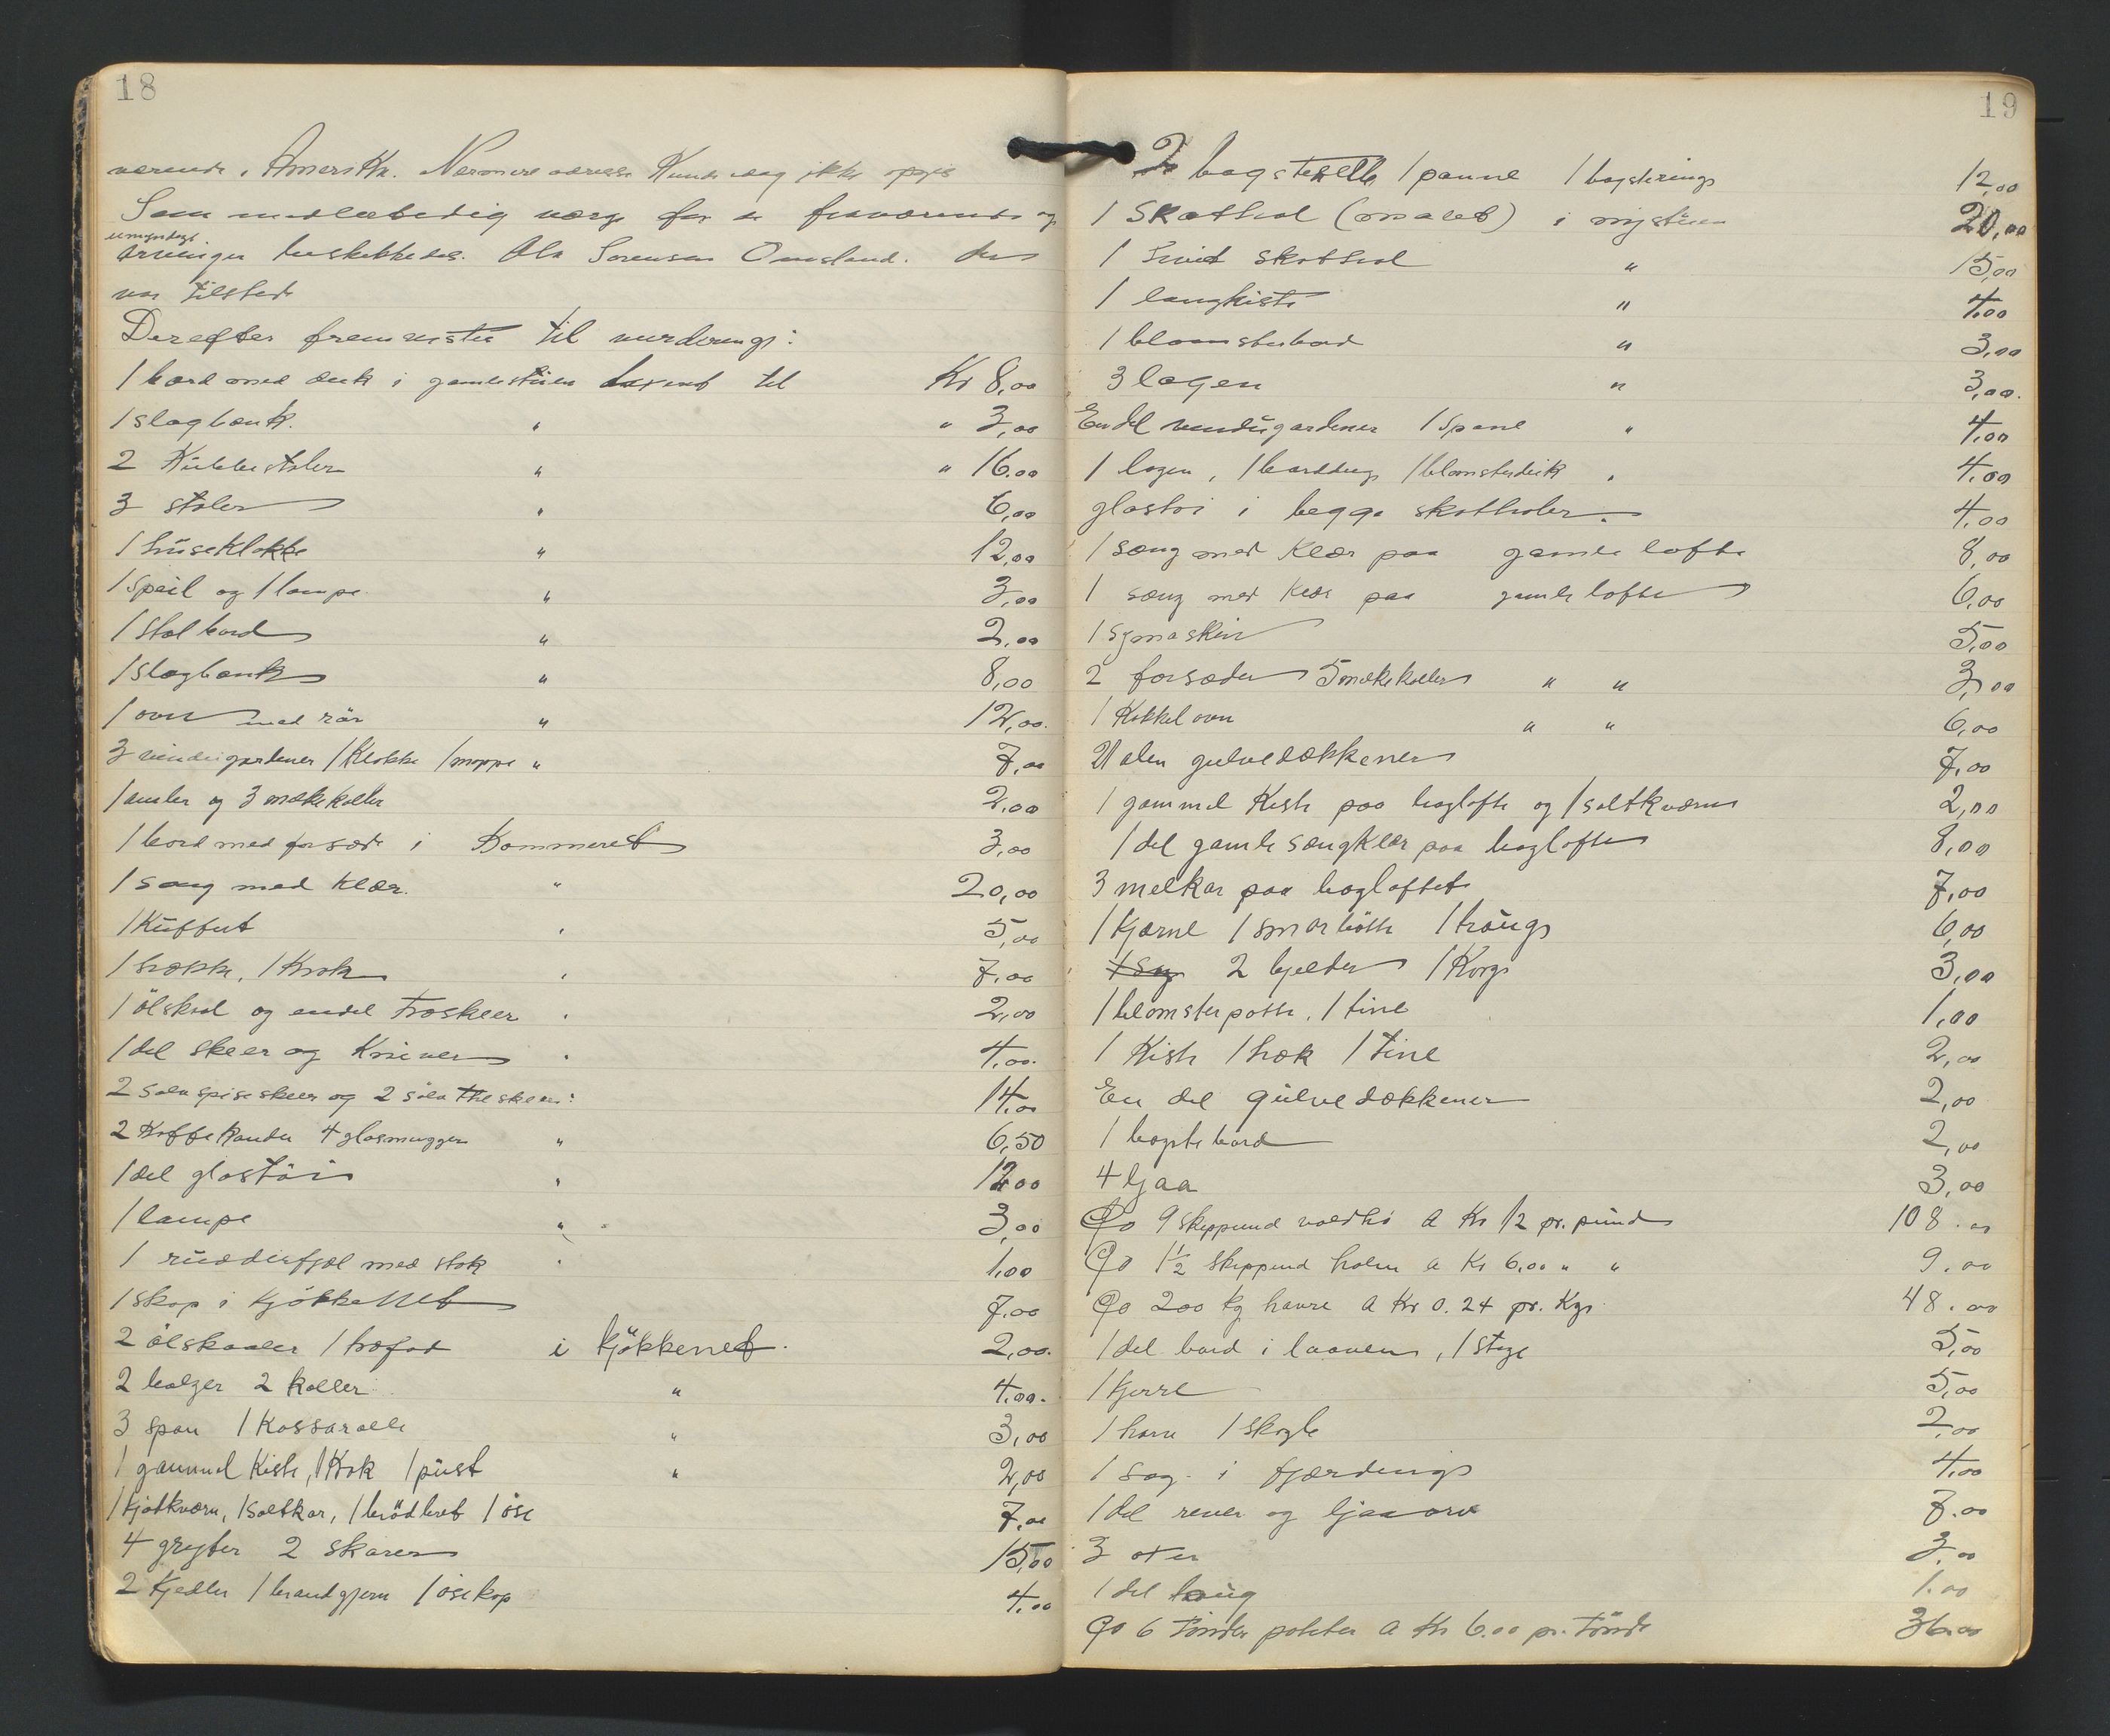 18
værende i Amerika. Nærmere adresse kunde eag ikke opgis
Som medlæbedig værge for de fraværende og
umyndige
arvinger beskikkedes. Ola Sørensen Omsland. der
var tilstede
Derefter fremviste til vurdering:
1 bord med duk i gamlestuen taxeret til Kr 8,00
1 slagbænk. " " 3,00
2 Kubbestoler " " 16.00
3 stoler " 6,00
1 huseklokke " 12,00
1 speil og 1 lampe " 3,00
1 stol bord " 2,00
1 slagbænk " 8,00
1 ovn med rör " 12,00.
3 vindugardener 1 Klokke 1 moppe " 7,00
1 ambar og 3 melkekoller 2,00
1 bord med forsæde i Kammeret 3,00
1 sæng med klær. " 20,00
1 Kuffert " 5,00
1 bøkke, 1 Krok " 7,00
1 ölskaal og endel træskeer " 2,00
1 del skeer og Kniver " 4,00.
2 sølv spiseskeer og 2 sølv theskeer: 14,00
2 Kaffekander 4 glasmugger " 6,50
1 del glastöi " 12.00
1 lampe " 3,00
1 rudderfjøl med stok " 1,00
1 skap i kjökkenet 7,00
2 ölskaaler 1 træfat i kjökkenet. 2,00.
2 balger 2 koller " 4,00.
3 span 1 Kassarolle " 3,00
1 gammel Kiste, 1 Krok 1 pust " 2,00
1 kjötkværn, 1 saltkar, 1 brödbret 1 öse 7,00
4 gryter 2 skarer 15,00
2 Kjedler 1 brandgjern 1 ösekop 4,00
19
2 bagstehelle 1 panne 1 bagstering 12,00
1 Skathol (malet) i nystuen 20,00
1 hvidt skathol " 15,00
1 langkiste " 4,00
1 blomsterbord " 3,00
3 lagen " 3,00.
Endel vindugardener 1 spane " 4,00
1 lagen, 1 borddug 1 blomsterduk " 4,00
glastöi i begge skatholer. 4,00
1 sæng med klær paa gamle lofte 8,00
1 sæng med klær paa gamle lofte 6,00
1 symaskin 5,00
2 forsæder 5 melkekoller " " 3,00
1 Kakkelovn " " 6,00
21 alen gulvedækkener 7,00
1 gammel Kiste paa bagloftet og 1 saltkværn 2,00
1 del gamle sængklær paa bagloftet 8,00
3 melkar paa bagloftet 7,00
1 kjærne 1 smørbötte 1 traug 6,00
1 Sag 2 bjelder 1 Korg 3,00
1 blomsterpotte, 1 tine 1,00
1 Kiste 1 hæk 1 tine 2,00
En del gulvedækkener 2,00
1 bagstebord 2,00
4 ljaa 3,00
Ca 9 skippund voldhö a Kr 12 pr. pund 108.00
Ca 1½ skippund halm a Kr 6.00 " " 9.00
Ca 200 kg havre a Kr 0.24 pr. Kg. 48.00
1 del bord i laaven, 1 stige 5,00
1 kjerre 5,00
1 harv 1 skagle 2,00
1 sag i fjærding 4,00
1 del river og ljaaorv 7.00
3 öxer 3,00
1 del taug 1.00
Ca 6 tönder poteter a Kr 6.00 pr. tönde 36.00